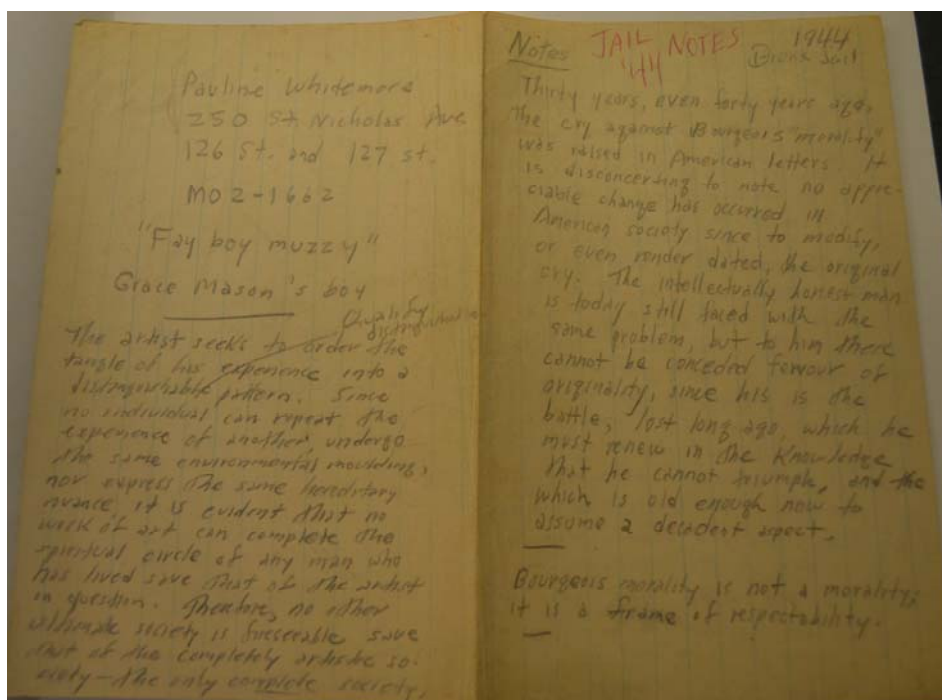 Pauline Whitemore
250 St. Nicholas Ave
126 St. and 127 st.
MO 2-1662
"Fay boy muzzy"
Grace Mason's boy
The artist seeks to order the
tangle of his experience into a
distinguishable pattern. Since
no individual can repeat the
experience of another, undergo
the same environmental moulding,
nor express the same hereditary
nuance, it is evident that no
work of art can complete the
spiritual circle of any man who
has lived save that of the artist
in question. Therefore, no other
ultimate society is foreseeable save
that of the completely artistic so-
ciety—the only complete society.
Notes JAIL NOTES 1944
'44 Bronx Jail
Thirty years, even forty years ago,
the cry against Bourgeois "morality"
was raised in American letters. It
is disconcerting to note no appre-
ciable change has occurred in
American society since to modify,
or even render dated, the original
cry. The intellectually honest man
is today still faced with the
same problem, but to him there
cannot be conceded fervour of
originality, since his is the
battle, lost long ago, which he
must renew in the knowledge
that he cannot triumph, and the
which is old enough now to
assume a decadent aspect.
Bourgeois morality is not a morality;
it is a frame of respectability.